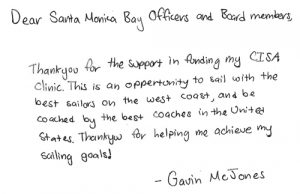 Dear Santa Monica Bay Officers and Board members,
Thankyou for the support in funding my CISA
Clinic. This is an opportunity to sail with the
best sailors on the west coast, and be
coached by the best coaches in the United
States. Thankyou for helping me achieve my
sailing goals!
- Gavin McJones